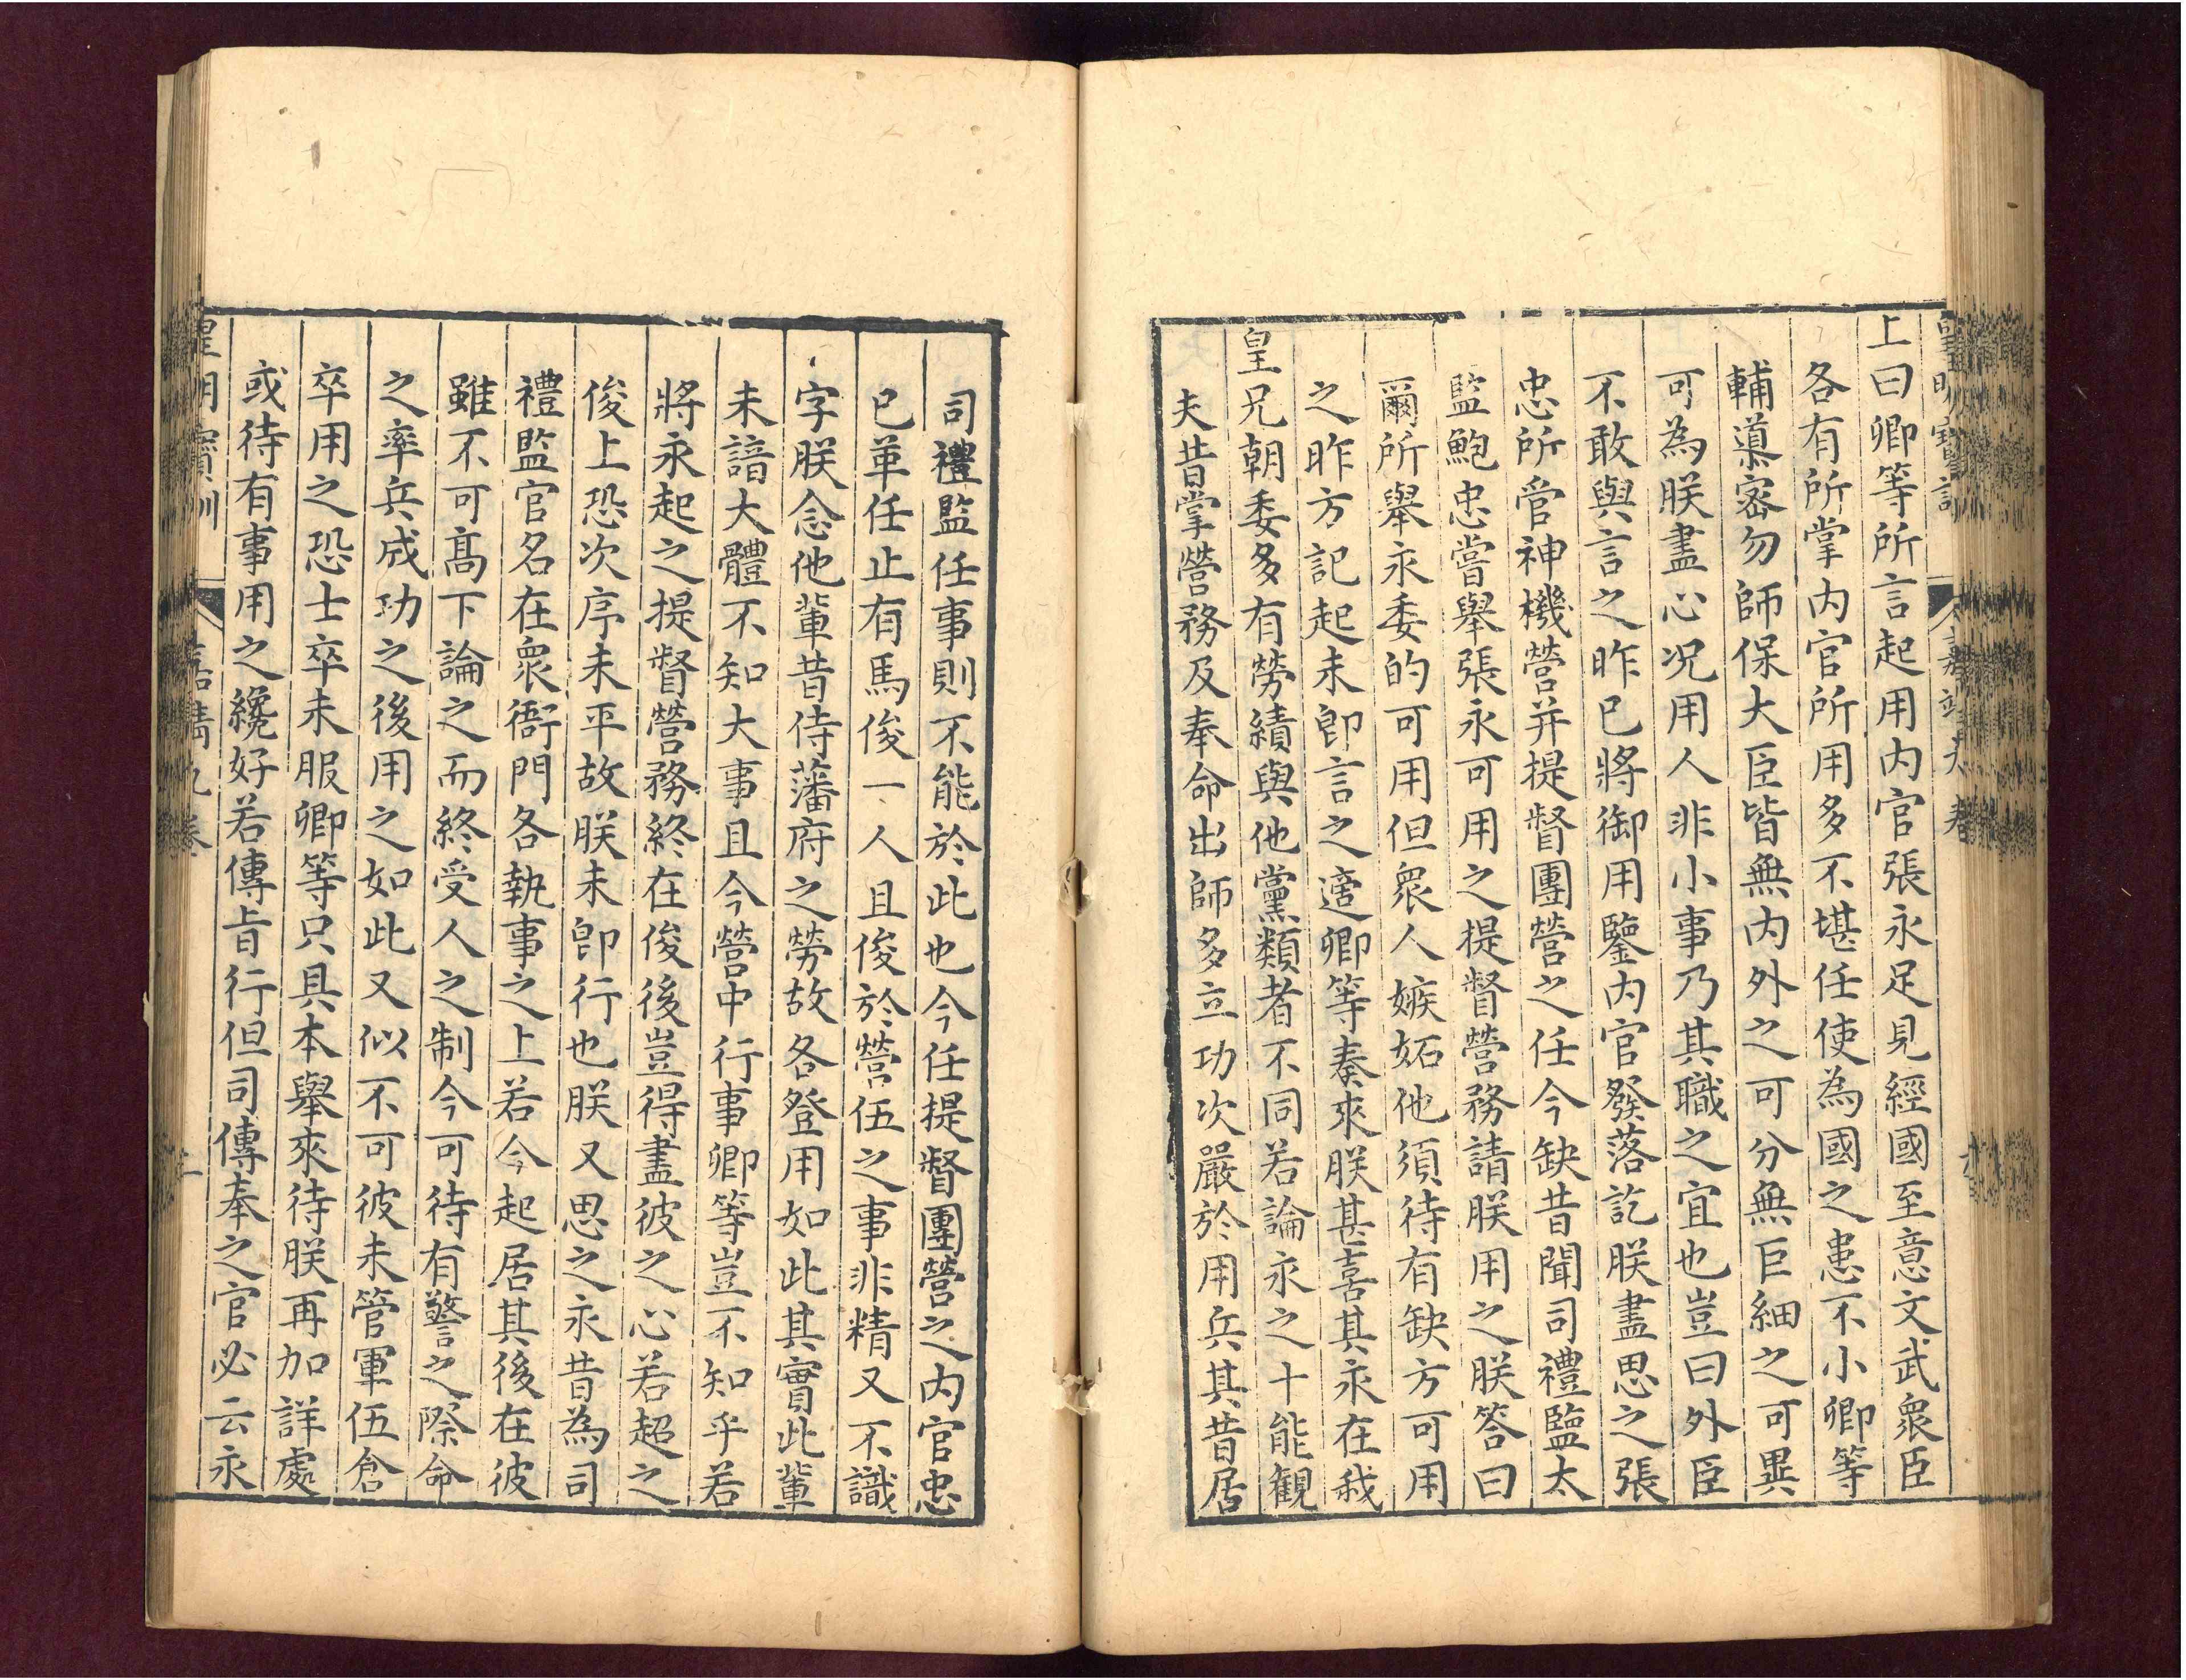 皇明寶訓 嘉靖 卷
上曰卿等所言起用内官張永足見經國至意文武衆臣
各有所掌内官所用多不堪任使為國之患不小卿等
輔導密勿師保大臣皆無内外之可分無巨細之可異
可為朕盡心況用人非小事乃其職之宜也豈曰外臣
不敢與言之昨已將御用鑒内官發落訖朕盡思之張
忠所管神機營并提督團營之任今缺昔聞司禮監太
監鮑忠嘗舉張永可用之提督營務請朕用之朕答曰
爾所舉永委的可用但衆人嫉妬他須待有缺方可用
之昨方記起未即言之適卿等奏來朕甚喜其永在我
皇兄朝委多有勞績與他黨類者不同若論永之十能觀
夫昔掌營務及奉命出師多立功次嚴於用兵其昔居
司禮監任事則不能於此也今任提督團營之内官忠
已革任止有馬俊一人且俊於營伍之事非精又不識
字朕念他輩昔侍藩府之勞故各登用如此其實此輩
未諳大體不知大事且今營中行事卿等豈不知乎若
將永起之提督營務終在俊後豈得盡彼之心若超之
俊上恐次序未平故朕未即行也朕又思之永昔為司
禮監官名在衆衙門各執事之上若今起居其後在彼
雖不可髙下論之而終受人之制今可待有警之際命
之率兵成功之後用之如此又似不可彼未管軍伍倉
卒用之恐士卒未服卿等只具本舉來待朕再加詳處
或待有事用之纔好若傳旨行但司傳奉之官必云永
皇明寶訓 嘉靖九卷